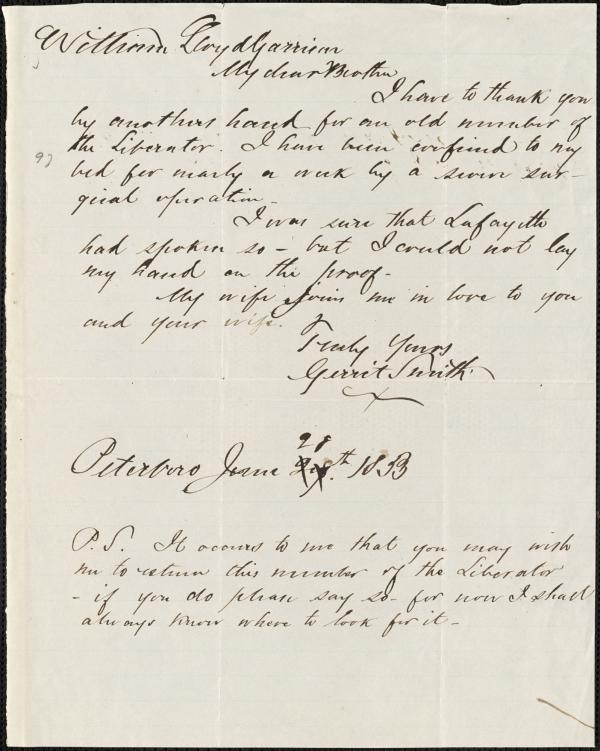 William Lloyd Garrison
My dear Brother
I have to thank you
by anothers hand for an old number of
the Liberator. I have been confined to my
bed for nearly a week by a severe sur-
gical operation -
I was sure that Lafayette
had spoken so - but I could not lay
my hand on the proof -
My wife joins me in love to you
and your wife.
Truly Yours
Gerrit Smith
28
Peterboro June th. 1853
P.S. It occurs to me that you may wish
me to return this number of the Liberator
- if you do please say so - for now I shall
always know where to look for it -